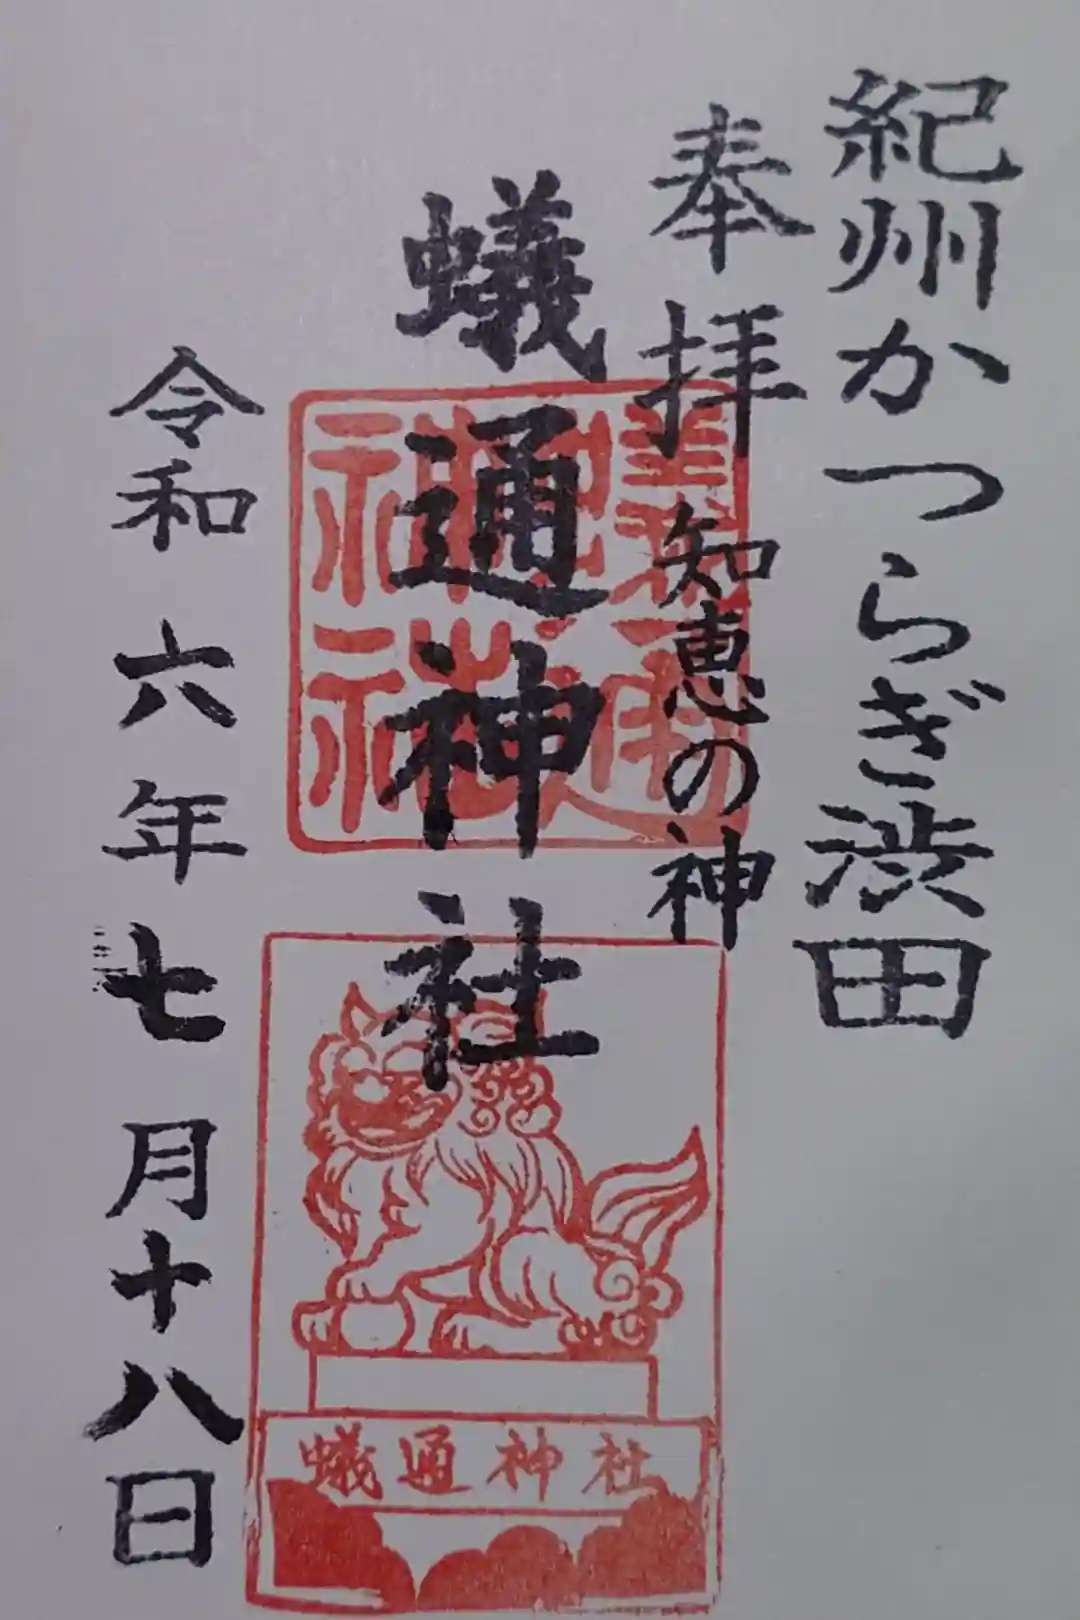 紀州かつらぎ渋田
奉拝
知恵の神
蟻通神社
蟻通神社
令和六年七月十八日
蟻通神社